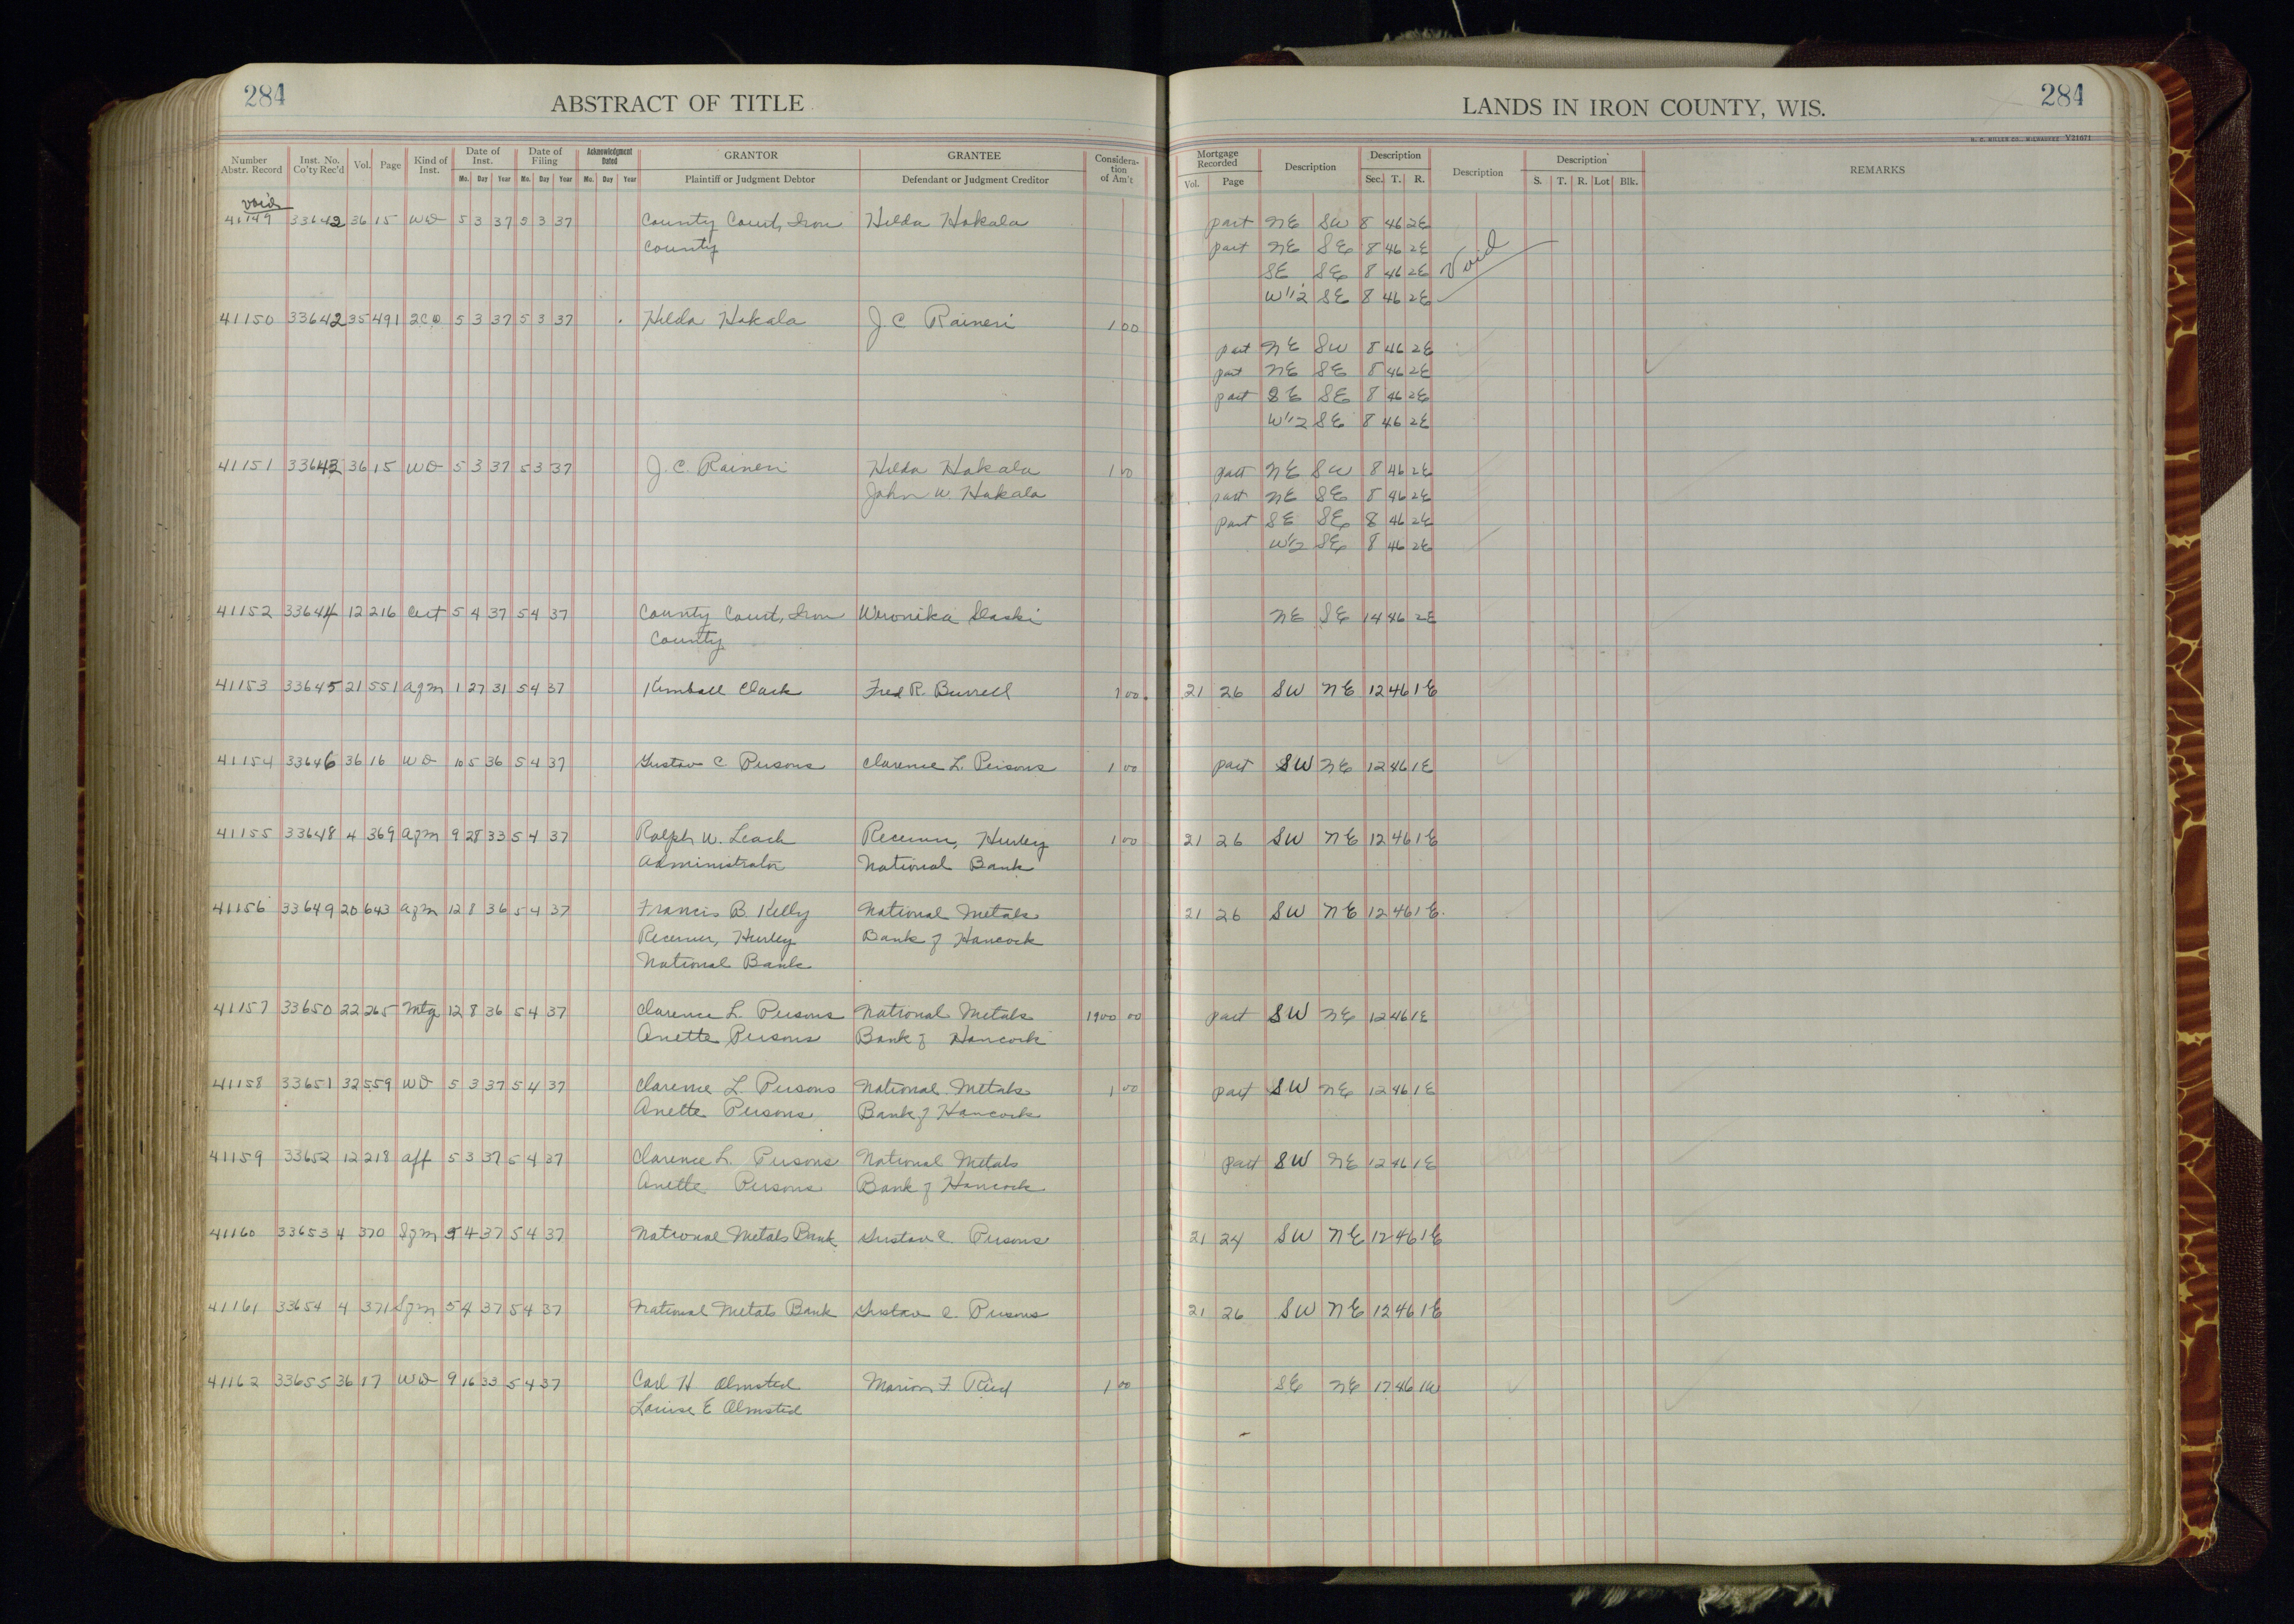 284
ABSTRACT OF TITLE
Number Abstr. Record Inst. No. Co'ty Rec'd Vol. Page Kind of Inst. Date of Inst. Mo. Day Year Date of Filing Mo. Day Year Acknowledgment Dated Mo. Day Year GRANTOR Plaintiff or Judgment Debtor GRANTEE Defendant or Judgment Creditor Considera-tion of Am't
void
41149 33642 36 15 WD 5 3 37 5 3 37 County Court, Iron Hilda Hakala
County
41150 33642 35 491 2CD 5 3 37 5 3 37 Hilda Hakala J C Raineri 1 00
41151 33643 36 15 WD 5 3 37 5 3 37 J. C. Raineri Hilda Hakala 1 00
John W Hakala
41152 33644 12 216 Cert 5 4 37 5 4 37 County Court, Iron Weronika Slaski
County
41153 33645 21 551 agm 1 27 31 5 4 37 Kimball Clark Fred R. Burrell 1 00
41154 33646 36 16 WD 10 5 36 5 4 37 Gustav C Persons Clarence L. Persons 1 00
41155 33648 4 369 agm 9 28 33 5 4 37 Ralph W. Leach Receiver, Hurley 1 00
Administrator National Bank
41156 33649 20 643 agm 12 8 36 5 4 37 Francis B. Kelly National Metals
Receiver, Hurley Bank of Hancock
National Bank
41157 33650 22 265 Mtg 12 8 36 5 4 37 Clarence L. Persons National Metals 1900 00
Anette Persons Bank of Hancock
41158 33651 32 559 WD 5 3 37 5 4 37 Clarence L Persons National Metals 1 00
Anette Persons Bank of Hancock
41159 33652 12 218 aff 5 3 37 5 4 37 Clarence L. Persons National Metals
Anette Persons Bank of Hancock
41160 33653 4 370 Sgm 5 4 37 5 4 37 National Metals Bank Gustav C. Persons
41161 33654 4 371 Sgm 5 4 37 5 4 37 National Metals Bank Gustav C. Persons
41162 33655 36 17 WD 9 16 33 5 4 37 Carl H Olmsted Marion F Reid 1 00
Louise E Olmsted
284
LANDS IN IRON COUNTY, WIS.
H. C. MILLER CO., MILWAUKEE V21671
Mortgage Recorded Vol. Page Description Description Sec. T. R. Description Description S. T. R. Lot Blk. REMARKS
part NE SW 8 46 2E
part NE SE 8 46 2E
SE SE 8 46 2E Void
W1/2 SE 8 46 2E
part NE SW 8 46 2E
part NE SE 8 46 2E
part SE SE 8 46 2E
W1/2 SE 8 46 2E
part NE SW 8 46 2E
part NE SE 8 46 2E
part SE SE 8 46 2E
W1/2 SE 8 46 2E
NE SE 14 46 2E
21 26 SW NE 12 46 1E
part SW NE 12 46 1E
21 26 SW NE 12 46 1E
21 26 SW NE 12 46 1E
part SW NE 12 46 1E
part SW NE 12 46 1E
part SW NE 12 46 1E
21 24 SW NE 12 46 1E
21 26 SW NE 12 46 1E
SE NE 17 46 1W